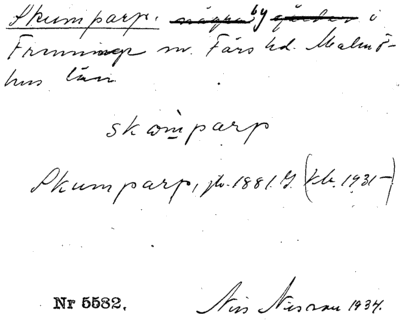 Skumparp. ~~några~~ by ~~gårdar~~ i
Frenninge sn. Färs hd. Malmö-
hus län
skomparp
Skumparp, jb. 1881. G. (kb. 1931-)
Nr 5582. Nils 1934.